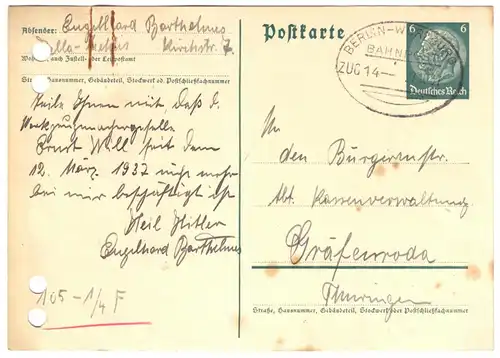 Absender: Engelhard Barthelmes
Zella-Mehlis Kirchstr. 7
Wohnort, auch Zustell- oder Leitpostamt
Straße, Hausnummer, Gebäudeteil, Stockwerk od. Postschließfachnummer
Teile Ihnen mit daß d.
Werkzeugmachergeselle
Ernst Will seit dem
12. März 1937 nicht mehr
bei mir beschäftigt ist
Heil Hitler
Engelhard Barthelmes
105-1/4 F
Postkarte
BERLIN-W
BAHNP
ZUG 14
6 6
Deutsches Reich
An
den Bürgermstr.
Abt. Kassenverwaltung
Gräfenroda
Thüringen
Straße, Hausnummer, Gebäudeteil, Stockwerk oder Postschließfachnummer